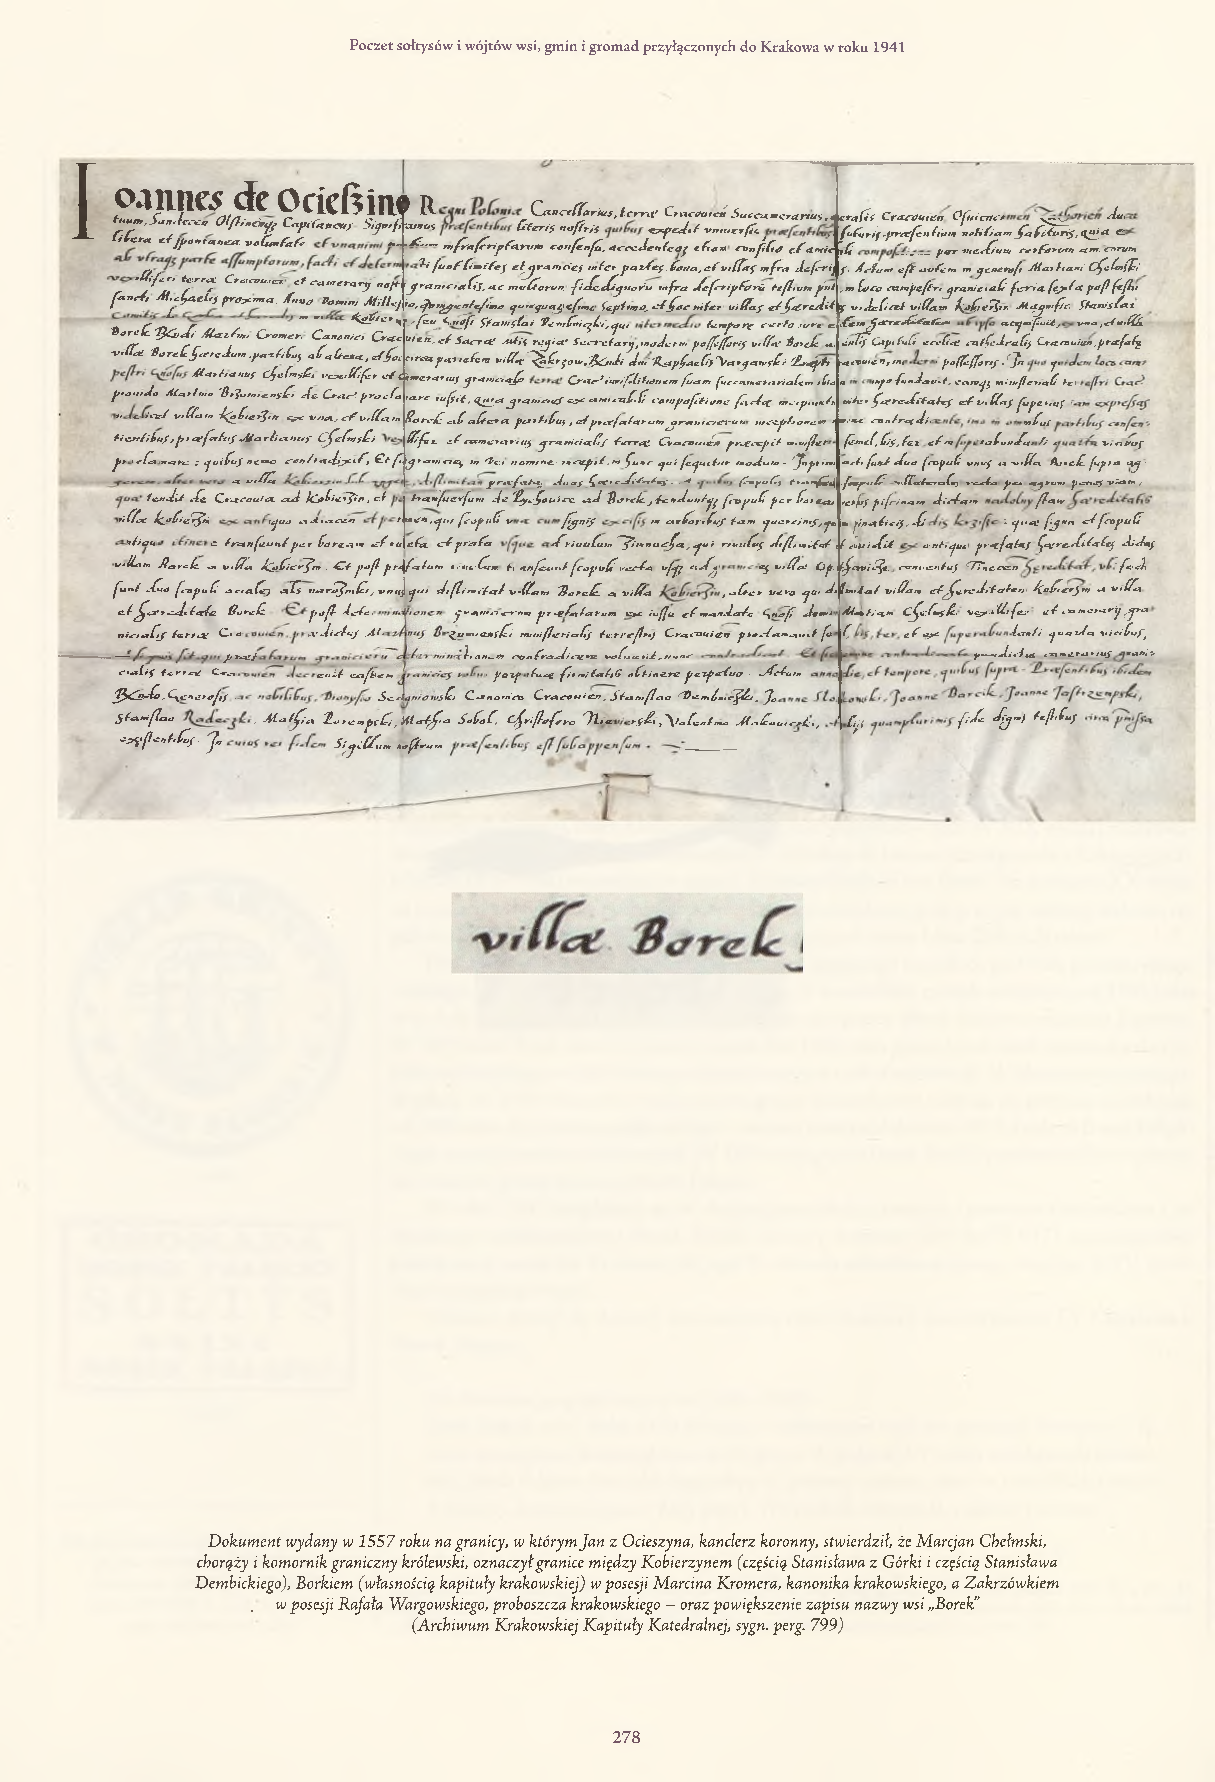 Poczet sołtysów i wójtów wsi, gmin i gromad przyłączonych do Krakowa w roku 1941
Ioannes de Ocieszino Regni Poloniæ Cancellarius, terræ Cracovień Succamerarius, generalis Cracovień, Osvienczimen Zathorień duca
tuum, Sandeceń Olstineńqz Capitaneus. Significamus præsentibus literis nostris quibus expedit vniversis præsentibus futuris præsentium notitiam habituris, quia ex
libera et spontanea voluntate et vnanimi partium infrascriptarum consensu, accedenteqz etiam consilio et amicabili compositione per medium certorum amicorum
ab vtraqz parte assumptorum, facti et determinati sunt limites et granicies inter partes, bona, et villas infra descriptas. Actum est autem in generosi Martiani Chelmski
vexilliferi terræ Cracovień, et camerarij nostri granicialis, ac multorum fidedignorū infra descriptorū testium pntia, in loco campestri graniciali feria sexta post festū
sancti Michaelis proxima. Anno Domini Millesimo, quingentesimo quinquagesimo Septimo, et hoc inter villas et hæreditates videlicet villam Kobierzin Magnific. Stanislai
Comitis de Gorka et hæredis in villa Kobierzin, seu Gnosi Stanislai Dembniczki, qui intermedio tempore certo iure eandem hæreditatem ab ipso acquisivit, ex vna, et villā
Borek Rxndi Martini Cromeri Canonici Cracovień, et Sacræ Mtis regiæ Secretarij, moderni possessoris villæ Borek agentis Capituli ecclæ cathedralis Cracovień, præfatę
villæ Borek hæredum, partibus ab altera, et hoc circa parietem villæ Zakrzow, Rxndi dni Raphaelis Vargawski Præpti Cracovień, moderni possessoris. In quo quidem loco cam
pestri Gnosus Martianus Chelmski vexillifer et camerarius granicialis terræ Crac iurisditionem suam succamerarialem ibidem in campo fundavit, eamqz ministeriali terrestri Crac
provido Martino Brzumienski de Crac proclamare iussit, Quia granicies ex amicabili compositione factæ incipiunt inter hæreditates et villas superius iam expressas
videlicet villam Kobierzin ex vna, et villam Borek ab altera partibus, et præfatarum granicierum inceptionem nemine contradicente, imo in omnibus partibus consen
tientibus, præfatus Martianus Chelmski vexillifer et camerarius granicialis terræ Cracovień præcepit ministeriali semel, bis, ter, et in superabundanti quarta vicibus
proclamare: quibus nemo contradixit, Et sic granicies in Dei nomine incepit, in hunc qui sequitur modum. Inprimis facti sunt duo scopuli vnus a villa Borek supra ag
gerem, alter vero a villa Kobierzin sub aggere, dislimitań præfatas duas hæreditates. A quibus scopulis transeunt scopuli villaterales recta per agrum penes viam,
quæ tendit de Cracovia ad Kobierzin, et per transversum de Pychovice ad Borek, tenduntqz scopuli per boream versus piscinam dictam nadolny staw hæreditatis
villæ Kobierzin ex antiquo adiaceń et pertinen, qui scopuli vna cum signis excisis in arboribus tam quercinis, quam pinaticis, dictis krziże: quæ signa et scopuli
antiquo itinere transeunt per boream et rubeta et prata vsque ad rivulum Zimnocha, qui rivulus dislimitat et dividit ex antiquo præfatas hæreditates dictas
villam Borek a villa Kobierzin. Et post præfatum rivulum transeunt scopuli recta vsqz ad granicies villæ Opathovicze, conventus Tineceń hæreditat, vbi facti
sunt duo scopuli aciales als narożniki, vnus qui dislimitat villam Borek a villa Kobierzin, alter vero qui dislimitat villam et hæreditatem Kobierzin a villa
et hæreditate Borek. Et post determinationem granicierum præfatarum ex iussu et mandato Gnosi domini Martiani Chelmski vexilliferi et camerarij gra
nicialis terræ Cracovień, prædictus Martinus Brzumienski ministerialis terrestris Cracovień proclamavit semel, bis, ter, et ex superabundanti quarta vicibus,
si quis sit qui præfatarum granicierū determinationem contradicere voluerit, nunc contradicat. Et sic nemine contradicente prædictus camerarius grani
cialis terræ Cracovień decrevit easdem granicies robur perpetuæ firmitatis obtinere perpetuo. Actum anno, die, et tempore, quibus supra. Præsentibus ibidem
Rxndo, Generosis, ac nobilibus, Dionysio Secignionski Canonico Cracovień, Stanislao Dembniczki, Joanne Slonkowski, Joanne Barcik, Joanne Jastrzempski,
Stanislao Radeczki, Mathia Porempski, Mathia Sobol, Christoforo Nievierski, Valentino Makoviczki, et alijs quamplurimis fide dignis testibus circa pmissa
existentibus. In cuius rei fidem Sigillum nostrum præsentibus est subappensum.
villæ Borek
Dokument wydany w 1557 roku na granicy, w którym Jan z Ocieszyna, kanclerz koronny, stwierdził, że Marcjan Chełmski,
chorąży i komornik graniczny królewski, oznaczył granice między Kobierzynem (częścią Stanisława z Górki i częścią Stanisława
Dembickiego), Borkiem (własnością kapituły krakowskiej) w posesji Marcina Kromera, kanonika krakowskiego, a Zakrzówkiem
w posesji Rafała Wargowskiego, proboszcza krakowskiego – oraz powiększenie zapisu nazwy wsi „Borek”
(Archiwum Krakowskiej Kapituły Katedralnej, sygn. perg. 799)
278